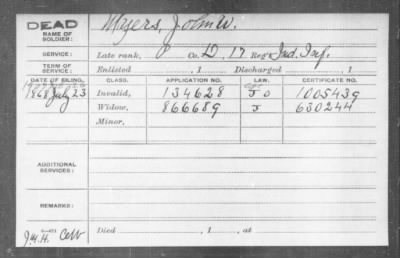 DEAD
NAME OF SOLDIER: Myers, John W.
SERVICE: Late rank, P Co. D, 17 Reg't Ind. Inf.
TERM OF SERVICE: Enlisted , 1 Discharged , 1
DATE OF FILING. CLASS. APPLICATION NO. LAW. CERTIFICATE NO.
1868 July 23 Invalid, 134628 1005439
Widow, 866689 J 630244
Minor,
ADDITIONAL SERVICES:
REMARKS:
Died , 1 , at